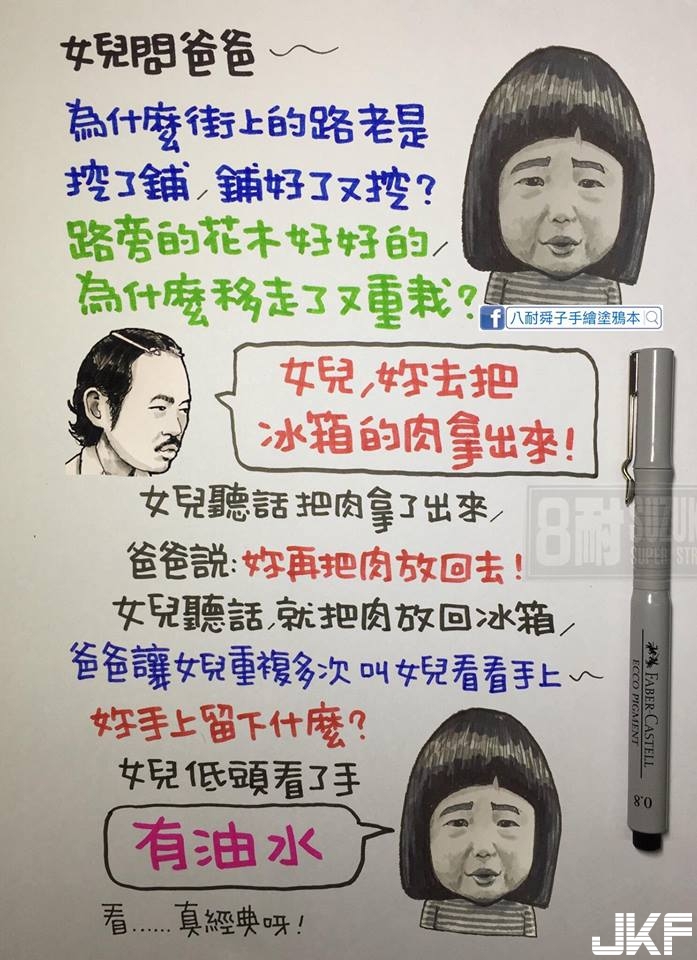 女兒問爸爸~
為什麼街上的路老是
挖了鋪,鋪好了又挖?
路旁的花木好好的,
為什麼移走了又重栽?
f 八耐舜子手繪塗鴉本
女兒,妳去把
冰箱的肉拿出來!
女兒聽話把肉拿了出來,
爸爸説:妳再把肉放回去!
女兒聽話,就把肉放回冰箱,
爸爸讓女兒重複多次 叫女兒看看手上~
妳手上留下什麼?
女兒低頭看了手
有油水
看......真經典呀!
8耐
FABER-CASTELL
ECCO PIGMENT
0.8
JKF